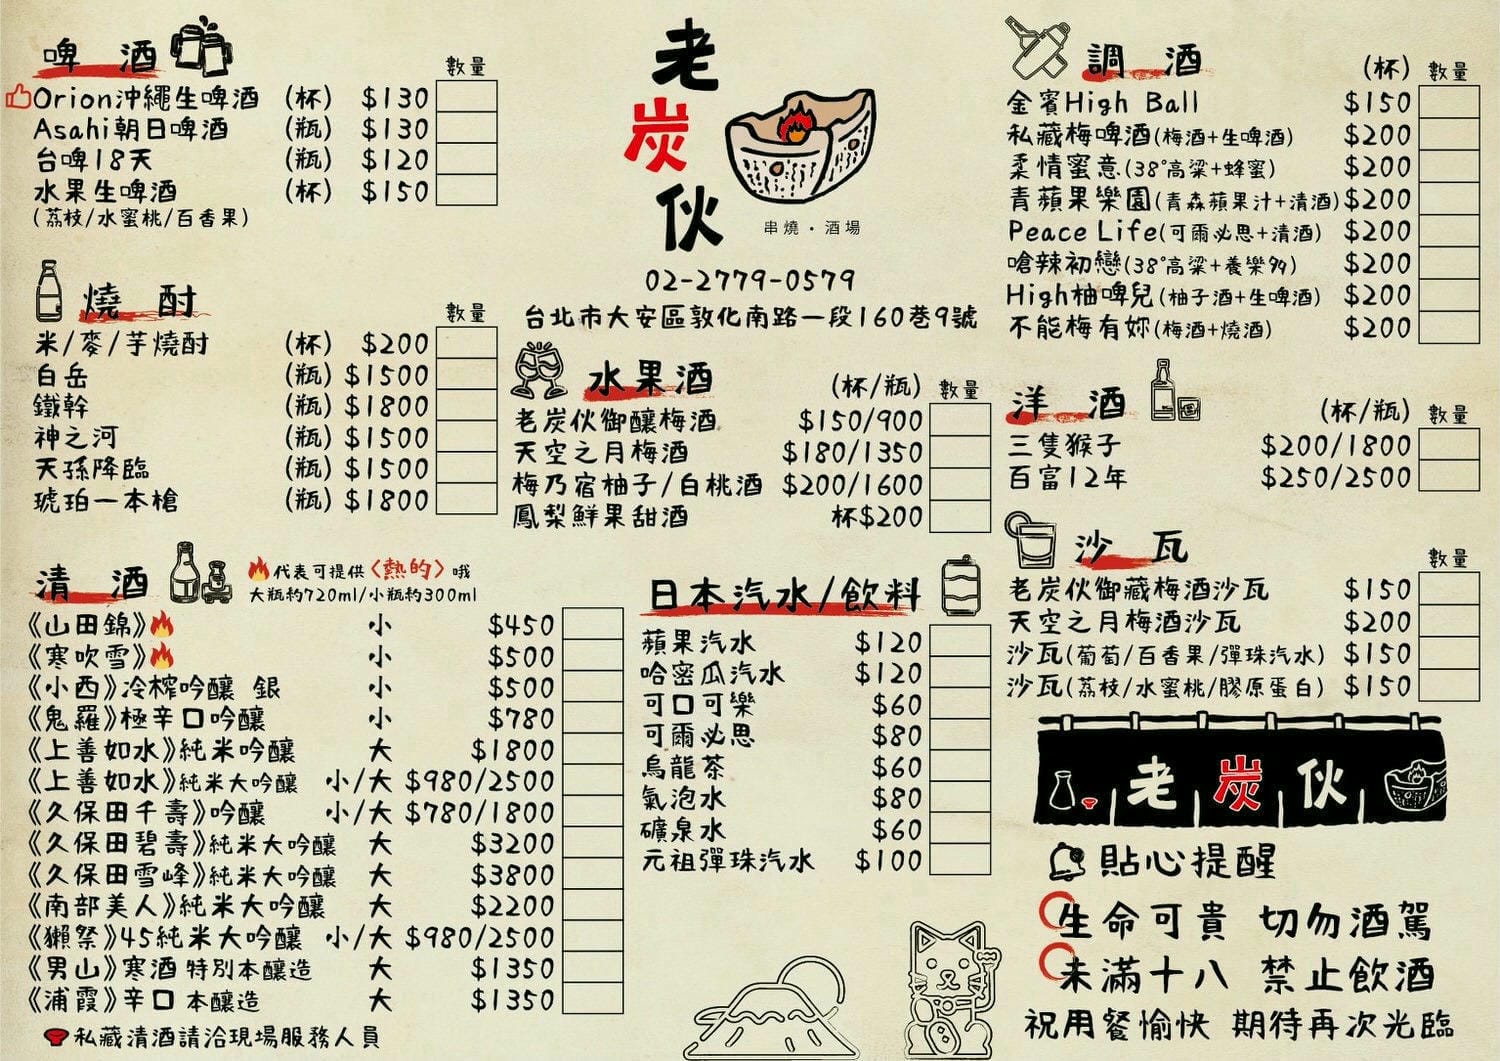 老炭伙
串燒・酒場
02-2779-0579
台北市大安區敦化南路一段160巷9號
啤酒 數量
Orion沖繩生啤酒 (杯) $130
Asahi朝日啤酒 (瓶) $130
台啤18天 (瓶) $120
水果生啤酒 (杯) $150
(荔枝/水蜜桃/百香果)
燒酎 數量
米/麥/芋燒酎 (杯) $200
白岳 (瓶) $1500
鐵幹 (瓶) $1800
神之河 (瓶) $1500
天孫降臨 (瓶) $1500
琥珀一本槍 (瓶) $1800
清酒 代表可提供〈熱的〉哦
大瓶約720ml/小瓶約300ml
《山田錦》 小 $450
《寒吹雪》 小 $500
《小西》冷榨吟釀 銀 小 $500
《鬼羅》極辛口吟釀 小 $780
《上善如水》純米吟釀 大 $1800
《上善如水》純米大吟釀 小/大 $980/2500
《久保田千壽》吟釀 小/大 $780/1800
《久保田碧壽》純米大吟釀 大 $3200
《久保田雪峰》純米大吟釀 大 $3800
《南部美人》純米大吟釀 大 $2200
《獺祭》45純米大吟釀 小/大 $980/2500
《男山》寒酒 特別本釀造 大 $1350
《浦霞》辛口 本釀造 大 $1350
私藏清酒請洽現場服務人員
水果酒 (杯/瓶) 數量
老炭伙御釀梅酒 $150/900
天空之月梅酒 $180/1350
梅乃宿柚子/白桃酒 $200/1600
鳳梨鮮果甜酒 杯$200
日本汽水/飲料
蘋果汽水 $120
哈密瓜汽水 $120
可口可樂 $60
可爾必思 $80
烏龍茶 $60
氣泡水 $80
礦泉水 $60
元祖彈珠汽水 $100
調酒 (杯) 數量
金賓High Ball $150
私藏梅啤酒(梅酒+生啤酒) $200
柔情蜜意(38°高粱+蜂蜜) $200
青蘋果樂園(青森蘋果汁+清酒) $200
Peace Life(可爾必思+清酒) $200
嗆辣初戀(38°高粱+養樂多) $200
High柚啤兒(柚子酒+生啤酒) $200
不能梅有妳(梅酒+燒酒) $200
洋酒 (杯/瓶) 數量
三隻猴子 $200/1800
百富12年 $250/2500
沙瓦 數量
老炭伙御藏梅酒沙瓦 $150
天空之月梅酒沙瓦 $200
沙瓦(葡萄/百香果/彈珠汽水) $150
沙瓦(荔枝/水蜜桃/膠原蛋白) $150
老炭伙
貼心提醒
生命可貴 切勿酒駕
未滿十八 禁止飲酒
祝用餐愉快 期待再次光臨